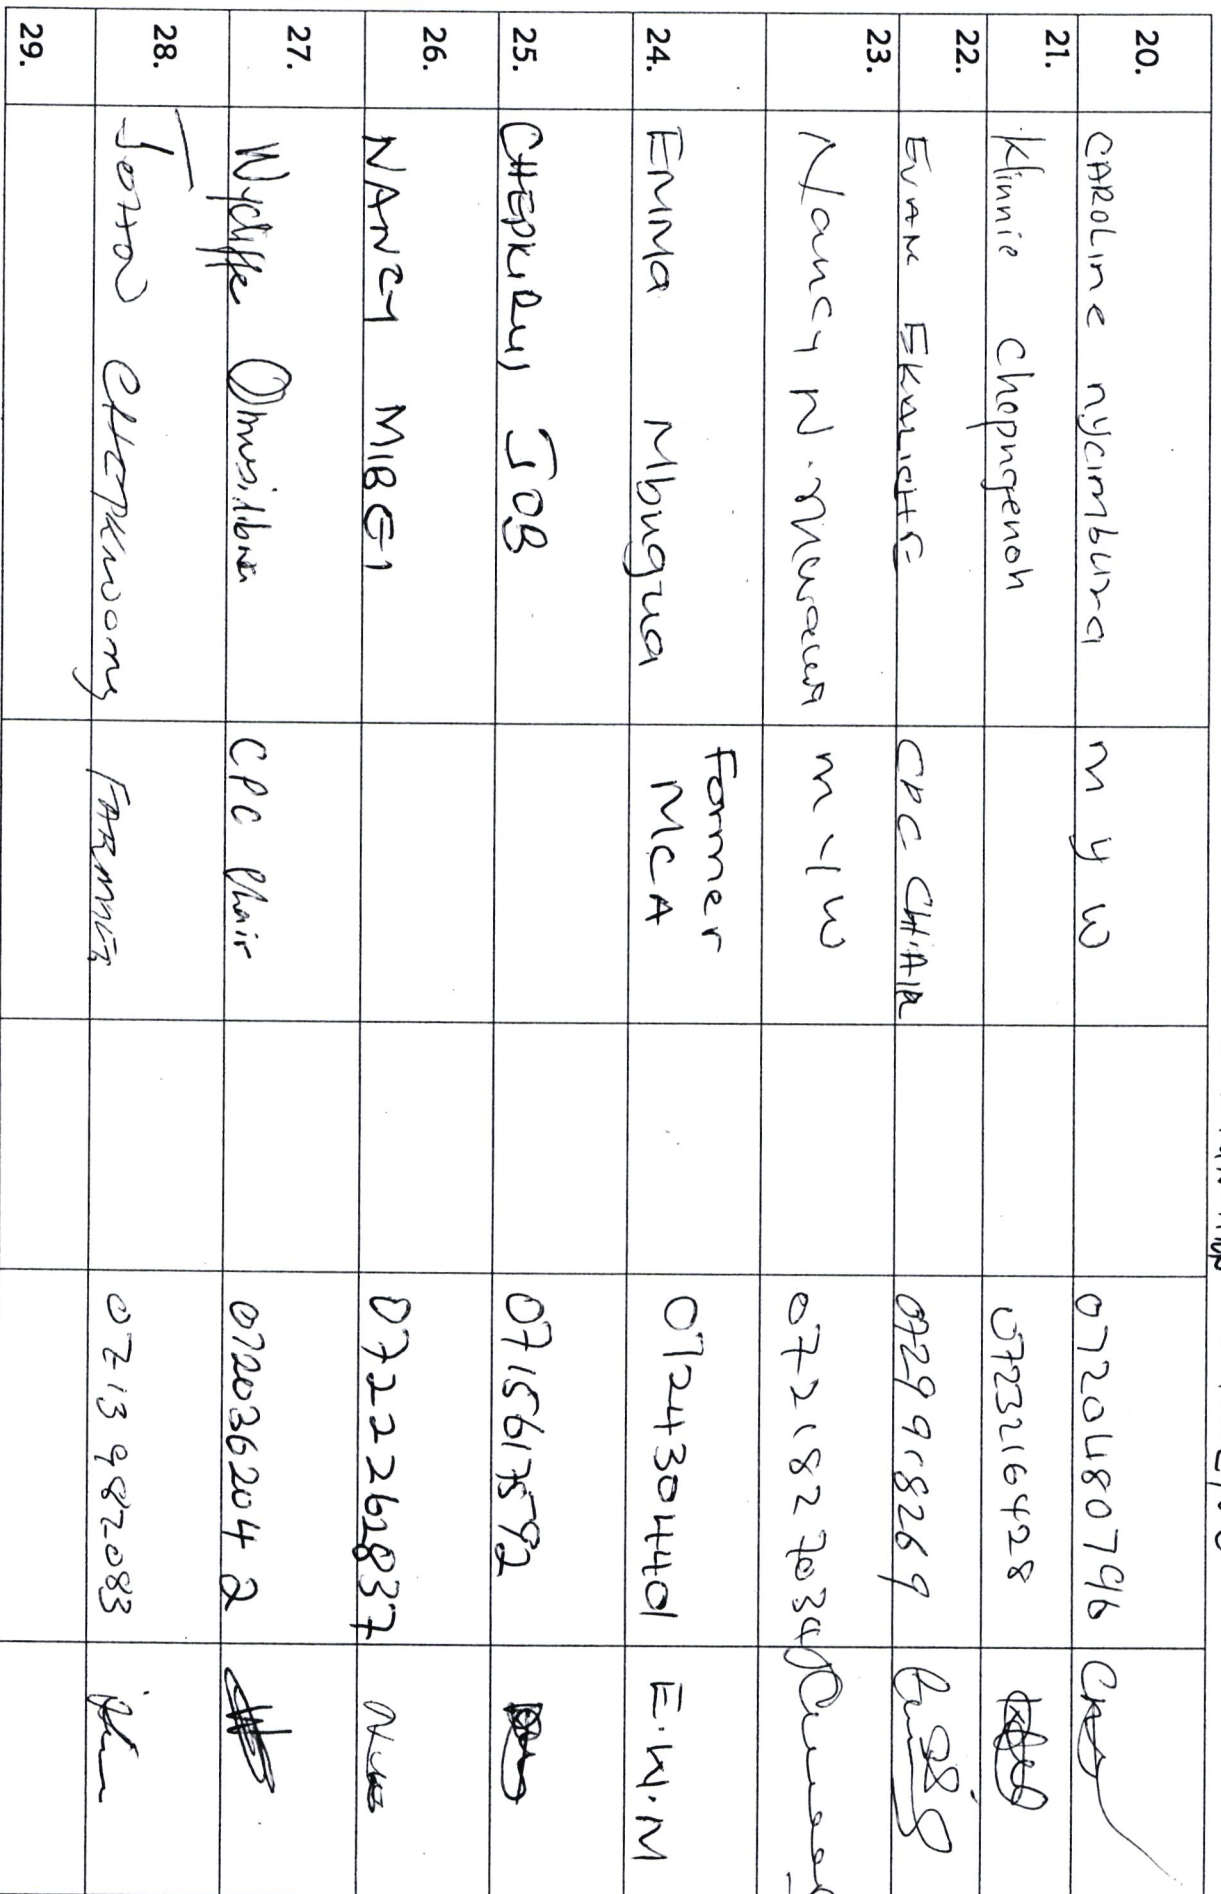 20. CAROLINE nyCimbura m y w 0720480796
21. Klinnie Chepngenoh 0723216428
22. EVANS EKALICHE CPC CHAIR 0729918269
23. Nancy N. m y w 0721827034
24. EMMA Mbugua Former MCA 0724430440 E.W.M
25. CHEPKIRUI JOB 0715617592
26. NANCY MIBEI 0722261837
27. Wycliffe CPC Chair 0720362042
28. JOHN CHEPKWONY FARMER 0713987083
29.